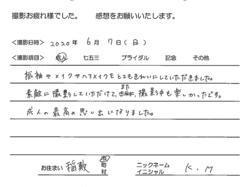 撮影お疲れ様でした。 感想をお願いいたします。
<撮影日時> 2020年 6月 7日(日)
<撮影項目> 成人 七五三 ブライダル 記念 その他
振袖やメイクやヘアメイクをとてもきれいにしていただきました。
素敵に撮影していただけて、また撮影中も楽しかったです。
成人の最高の思い出になりました。
お住まい 稲敷 市 町 村 ニックネーム イニシャル K.M